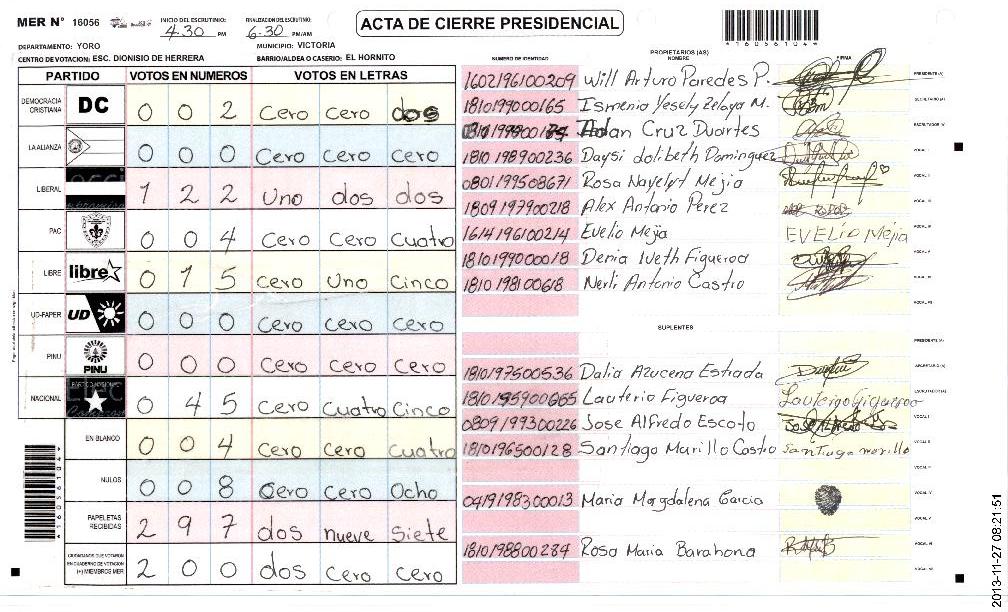 MER N° 16056
INICIO DEL ESCRUTINIO: 4.30 PM
FINALIZACION DEL ESCRUTINIO: 6-30 PM/AM
ACTA DE CIERRE PRESIDENCIAL
*16056104*
DEPARTAMENTO: YORO
MUNICIPIO: VICTORIA
CENTRO DE VOTACION: ESC. DIONISIO DE HERRERA
BARRIO/ALDEA O CASERIO: EL HORNITO
PARTIDO VOTOS EN NUMEROS VOTOS EN LETRAS
DEMOCRACIA CRISTIANA DC 0 0 2 Cero Cero dos
LA ALIANZA 0 0 0 Cero Cero Cero
LIBERAL 1 2 2 Uno dos dos
PAC 0 0 4 Cero Cero Cuatro
LIBRE libre 0 1 5 Cero Uno Cinco
UD-FAPER UD 0 0 0 Cero Cero Cero
PINU PINU 0 0 0 Cero Cero Cero
NACIONAL 0 4 5 Cero Cuatro Cinco
EN BLANCO 0 0 4 Cero Cero Cuatro
NULOS 0 0 8 Cero Cero Ocho
PAPELETAS RECIBIDAS 2 9 7 dos nueve siete
CIUDADANOS QUE VOTARON EN CUADERNO DE VOTACION (+) MIEMBROS MER 2 0 0 dos Cero Cero
PROPIETARIOS (AS)
NUMERO DE IDENTIDAD NOMBRE FIRMA
1602196100209 Will Arturo Paredes P. PRESIDENTE (A)
1810199000165 Ismenia Yesely Zelaya M. SECRETARIO (A)
Adan Cruz Duartes ESCRUTADOR (A)
1810198900236 Daysi dolibeth Dominguez VOCAL I
0801199508671 Rosa Nayelyt Mejia VOCAL II
1809197900218 Alex Antonio Perez VOCAL III
1614196100214 Evelio Mejia EVELIO Mejia VOCAL IV
1810199000018 Denia Iveth Figueroa VOCAL V
1810198100618 Nerli Antonio Castro VOCAL VI
VOCAL VII
SUPLENTES
PRESIDENTE (A)
1810197500536 Dalia Azucena Estrada SECRETARIO (A)
1810195900665 Lauterio Figueroa ESCRUTADOR (A)
0809199300226 Jose Alfredo Escoto VOCAL I
1810196500128 Santiago Murillo Castro Santiago morillo VOCAL II
0419198300013 Maria Magdalena Garcia VOCAL IV
VOCAL V
1810198800284 Rosa Maria Barahona VOCAL VI
VOCAL VII
*16056104*
2013-11-27 08:21:51